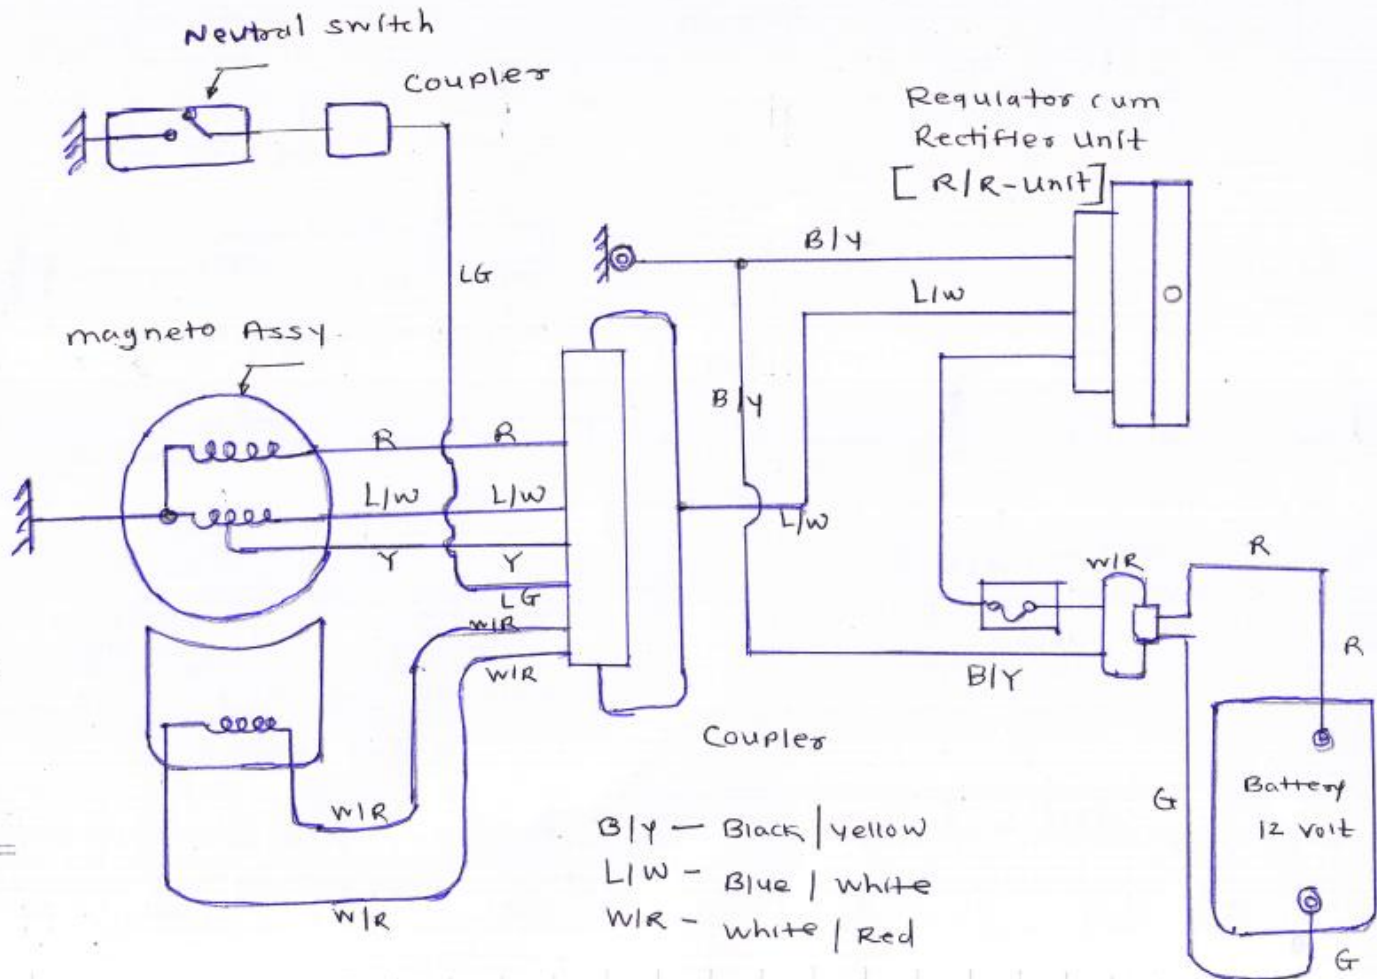 Neutral switch
Coupler
Requlator cum
Rectifier Unit
[R/R-Unit]
B/Y
LG
L/W
magneto Assy.
B/Y
R R
L/W L/W
L/W
Y Y
LG
W/R
W/R
W/R
R
B/Y
R
Coupler
W/R
W/R
G
Battery
12 volt
B/Y - Black/yellow
L/W - Blue/white
W/R - white/Red
G